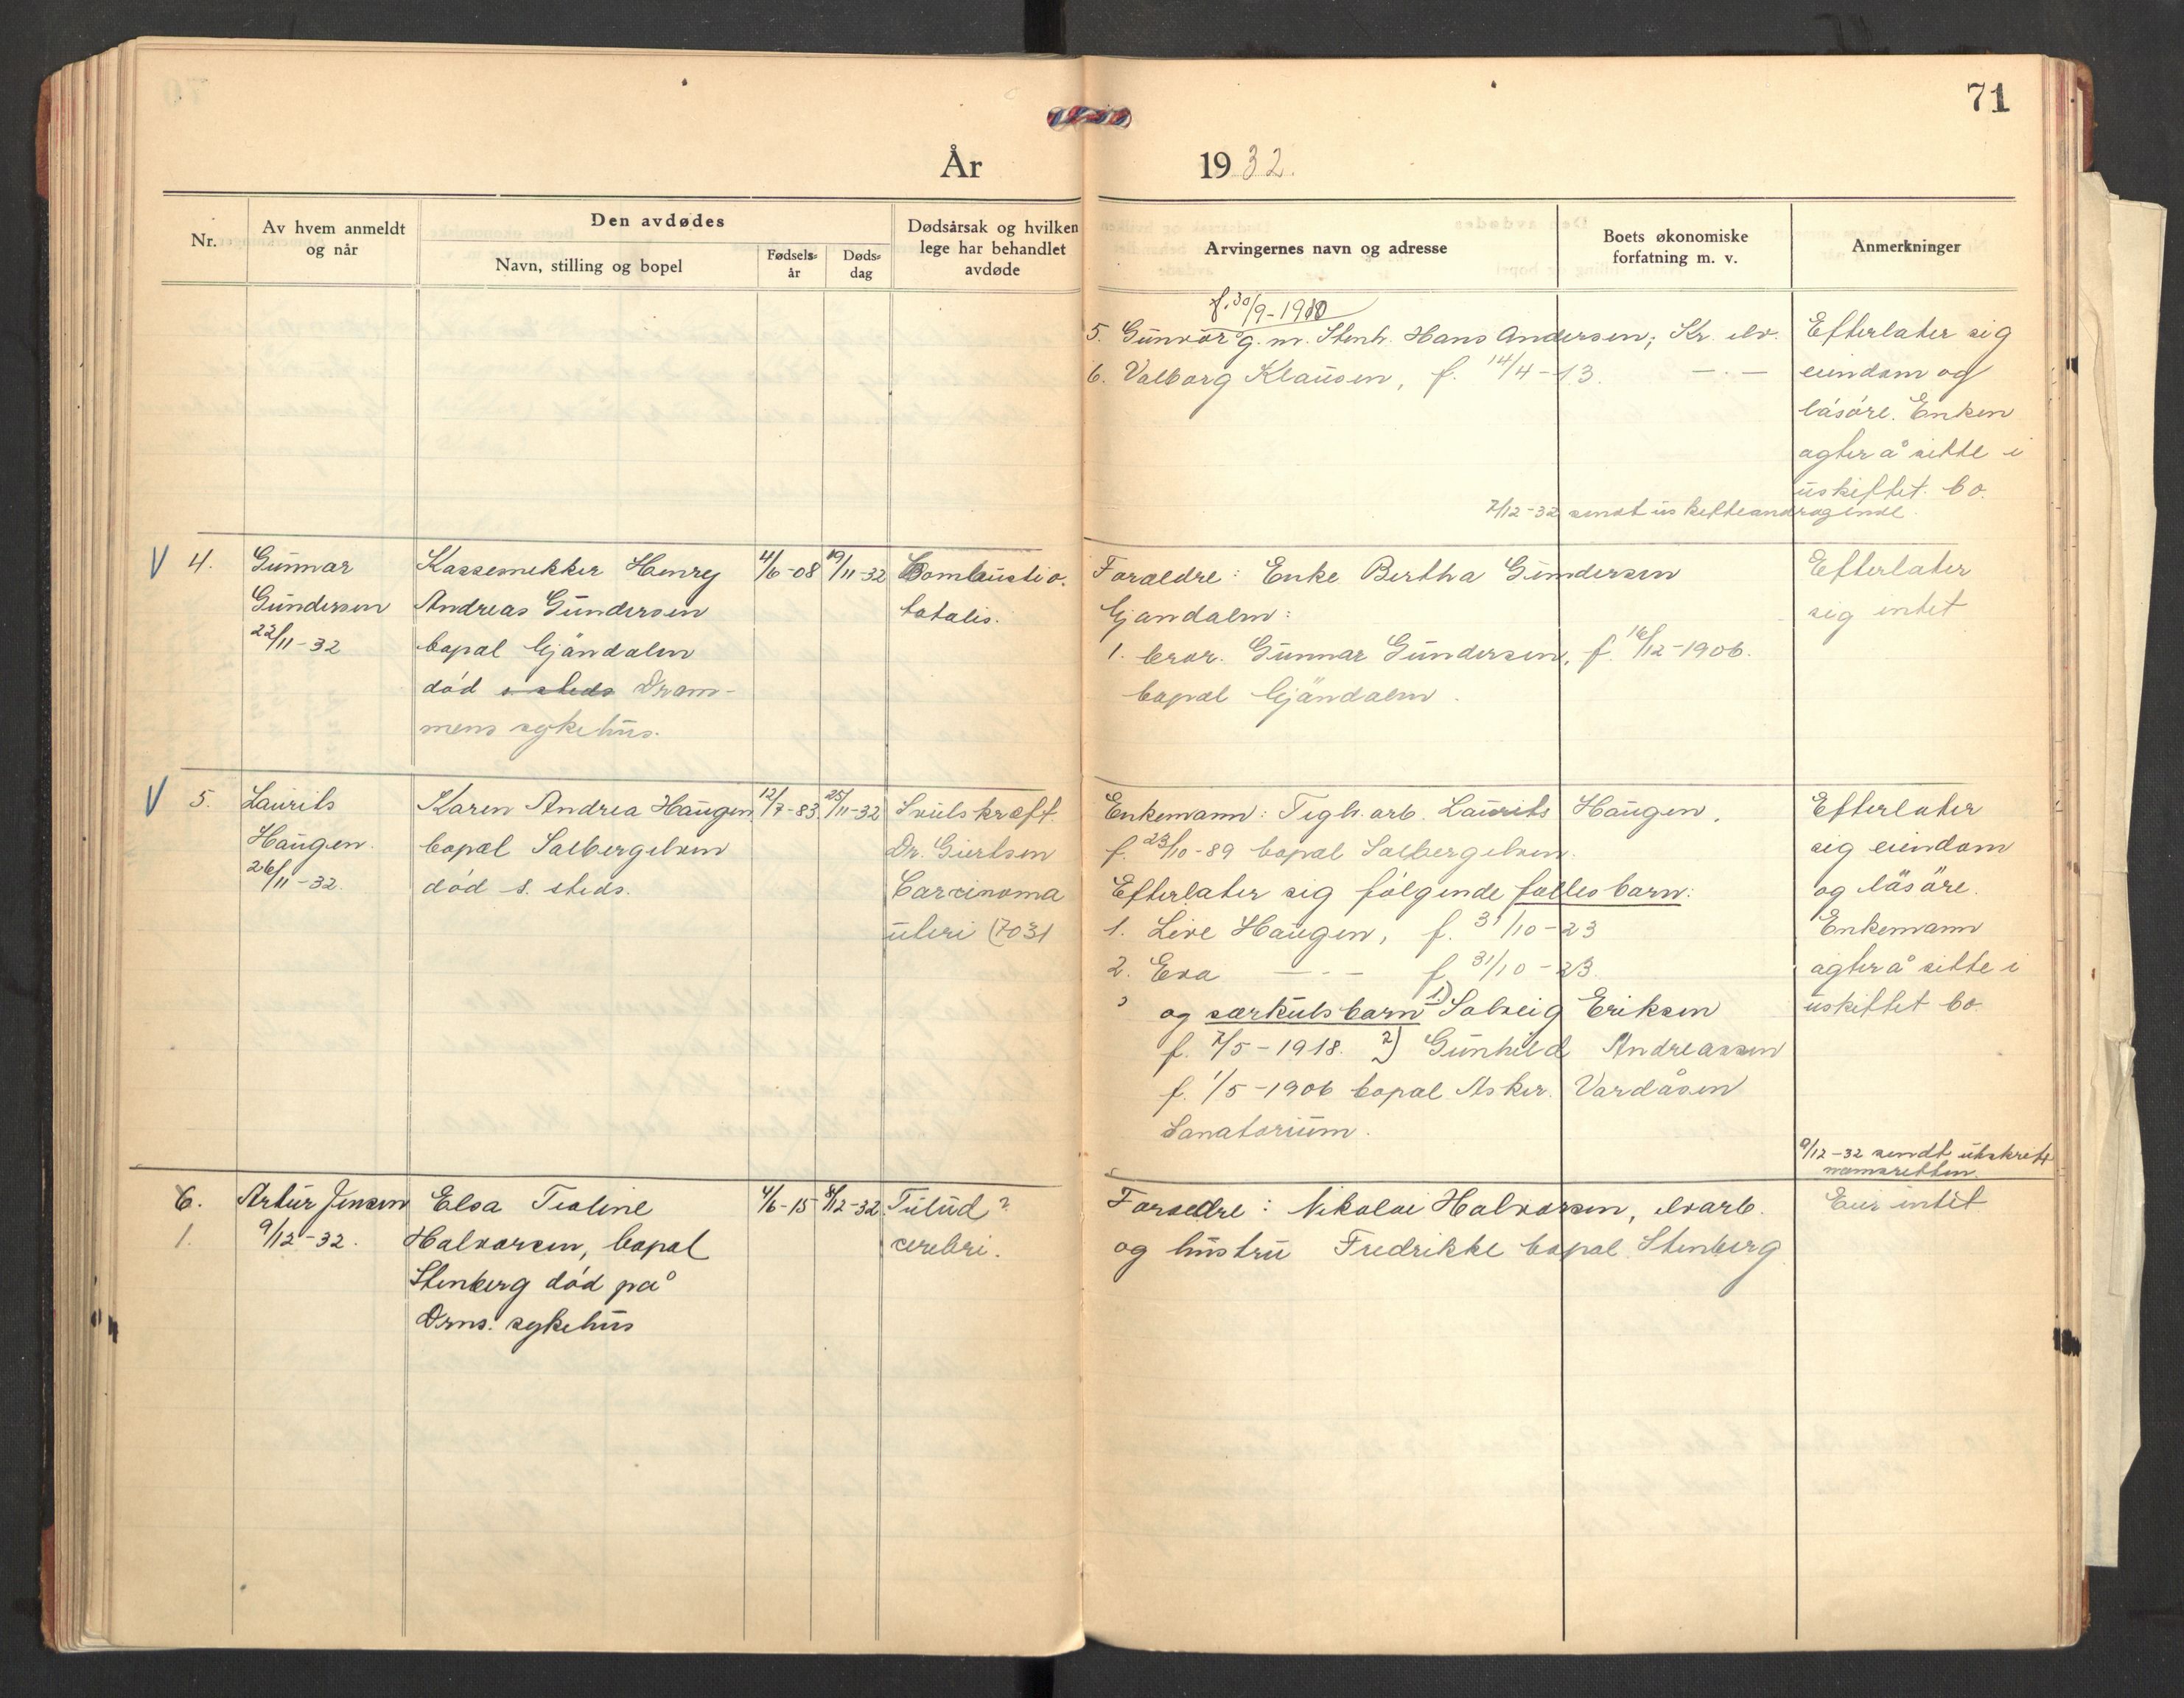 71
År 1932.
Nr.
Av hvem anmeldt og når
Den avdødes
Navn, stilling og bopel
Fødsels-år
Døds-dag
Dødsårsak og hvilken lege har behandlet avdøde
Arvingernes navn og adresse
Boets økonomiske forfatning m. v.
Anmerkninger
f. 30/9-1910
5. Gunvor g. m. Stenh. Hans Andersen, Kr. elv.
6. Valborg Klausen, f. 14/4-13. — . —
Efterlater sig
eiendom og
løsøre. Enken
agter å sitte i
uskiftet bo.
7/12-32 sendt uskifteandragende.
V 4.
Gunnar
Gundersen
22/11-32
Kassesnekker Henry
Andreas Gundersen
bopæl Gjøndalen
død s. steds Dram-
mens sykehus.
4/6-08
19/11-32
Combustio
totalis.
Foreldre: Enke Bertha Gundersen
Gjøndalen:
1. bror. Gunnar Gundersen, f. 16/12-1906.
bopæl Gjøndalen.
Efterlater
sig intet
V 5.
Laurits
Haugen.
26/11-32.
Karen Andrea Haugen
bopæl Solbergelven
død s. steds.
12/7-83
25/11-32
Svulskræft.
Dr. Giertsen
Carcinoma
uteri (703)
Enkemann: Teglv. arb. Laurits Haugen,
f. 23/10-89 bopæl Solbergelven.
Efterlater sig følgende felles barn:
1. Live Haugen, f. 31/10-23
2. Eva — . — f. 31/10-23.
og særkulsbarn 1) Solveig Eriksen
f. 7/5-1918. 2) Gunhild Andreassen
f. 1/5-1906 bopæl Asker. Vardåsen
Sanatorium.
Efterlater
sig eiendom
og løsøre.
Enkemann
agter å sitte i
uskiftet bo.
9/12-32 sendt utskrift
namsretten.
6.
1.
Artur Jensen
9/12-32.
Elsa Teoline
Halvorsen, bopæl
Stenberg død på
Drms. sykehus
4/6-15
8/12-32
cerebri.
Foreldre: Nikolai Halvorsen, elvarb.
og hustru Fredrikke bopæl Stenberg
Eier intet